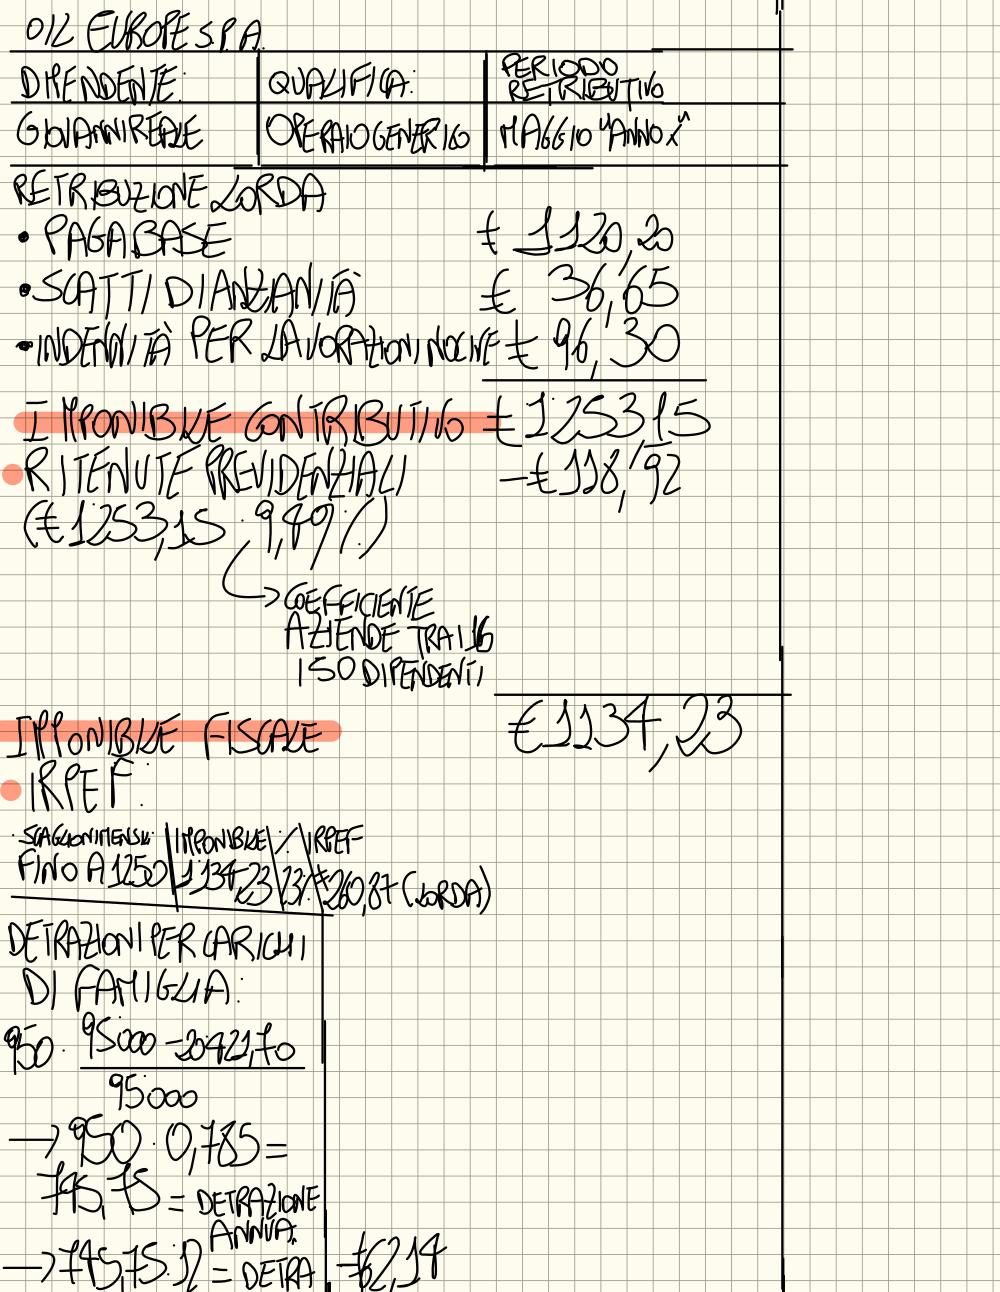 OIL EUROPE S.P.A.
DIPENDENTE: QUALIFICA: PERIODO RETRIBUTIVO
GIOVANNI REALE OPERAIO GENERICO MAGGIO "ANNO X"
RETRIBUZIONE LORDA
• PAGA BASE € 1120,20
• SCATTI DI ANZIANITÀ € 36,65
• INDENNITÀ PER LAVORAZIONI NOCIVE € 96,30
IMPONIBILE CONTRIBUTIVO € 1253,15
• RITENUTE PREVIDENZIALI -€ 118,92
(€ 1253,15 · 9,49%)
→ COEFFICIENTE
AZIENDE TRA I 16
I 50 DIPENDENTI
IMPONIBILE FISCALE € 1134,23
• IRPEF:
SCAGLIONI MENSILI IMPONIBILE % IRPEF
FINO A 1250 1134,23 23% €260,87 (LORDA)
DETRAZIONI PER CARICHI
DI FAMIGLIA:
950 · 95000 - 20421,70
95000
→ 950 · 0,785 =
745,75 = DETRAZIONE
ANNUA.
→ 745,75:12 = DETRA -€62,14